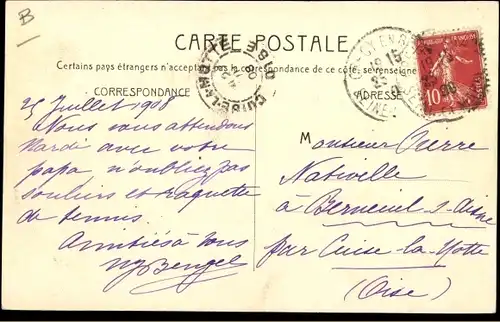 B
CARTE POSTALE
Certains pays étrangers n'acceptant pas la correspondance de ce côté, se renseigner
CORRESPONDANCE
ADRESSE
25 Juillet 1908
Nous vous attendons
Mardi avec votre
papa, n'oubliez pas
souliers et raquette
de tennis
Amitiés à vous
M
Monsieur Pierre
Nativelle
à Berneuil s. Aisne
par Cuise la Motte
(Oise)
10